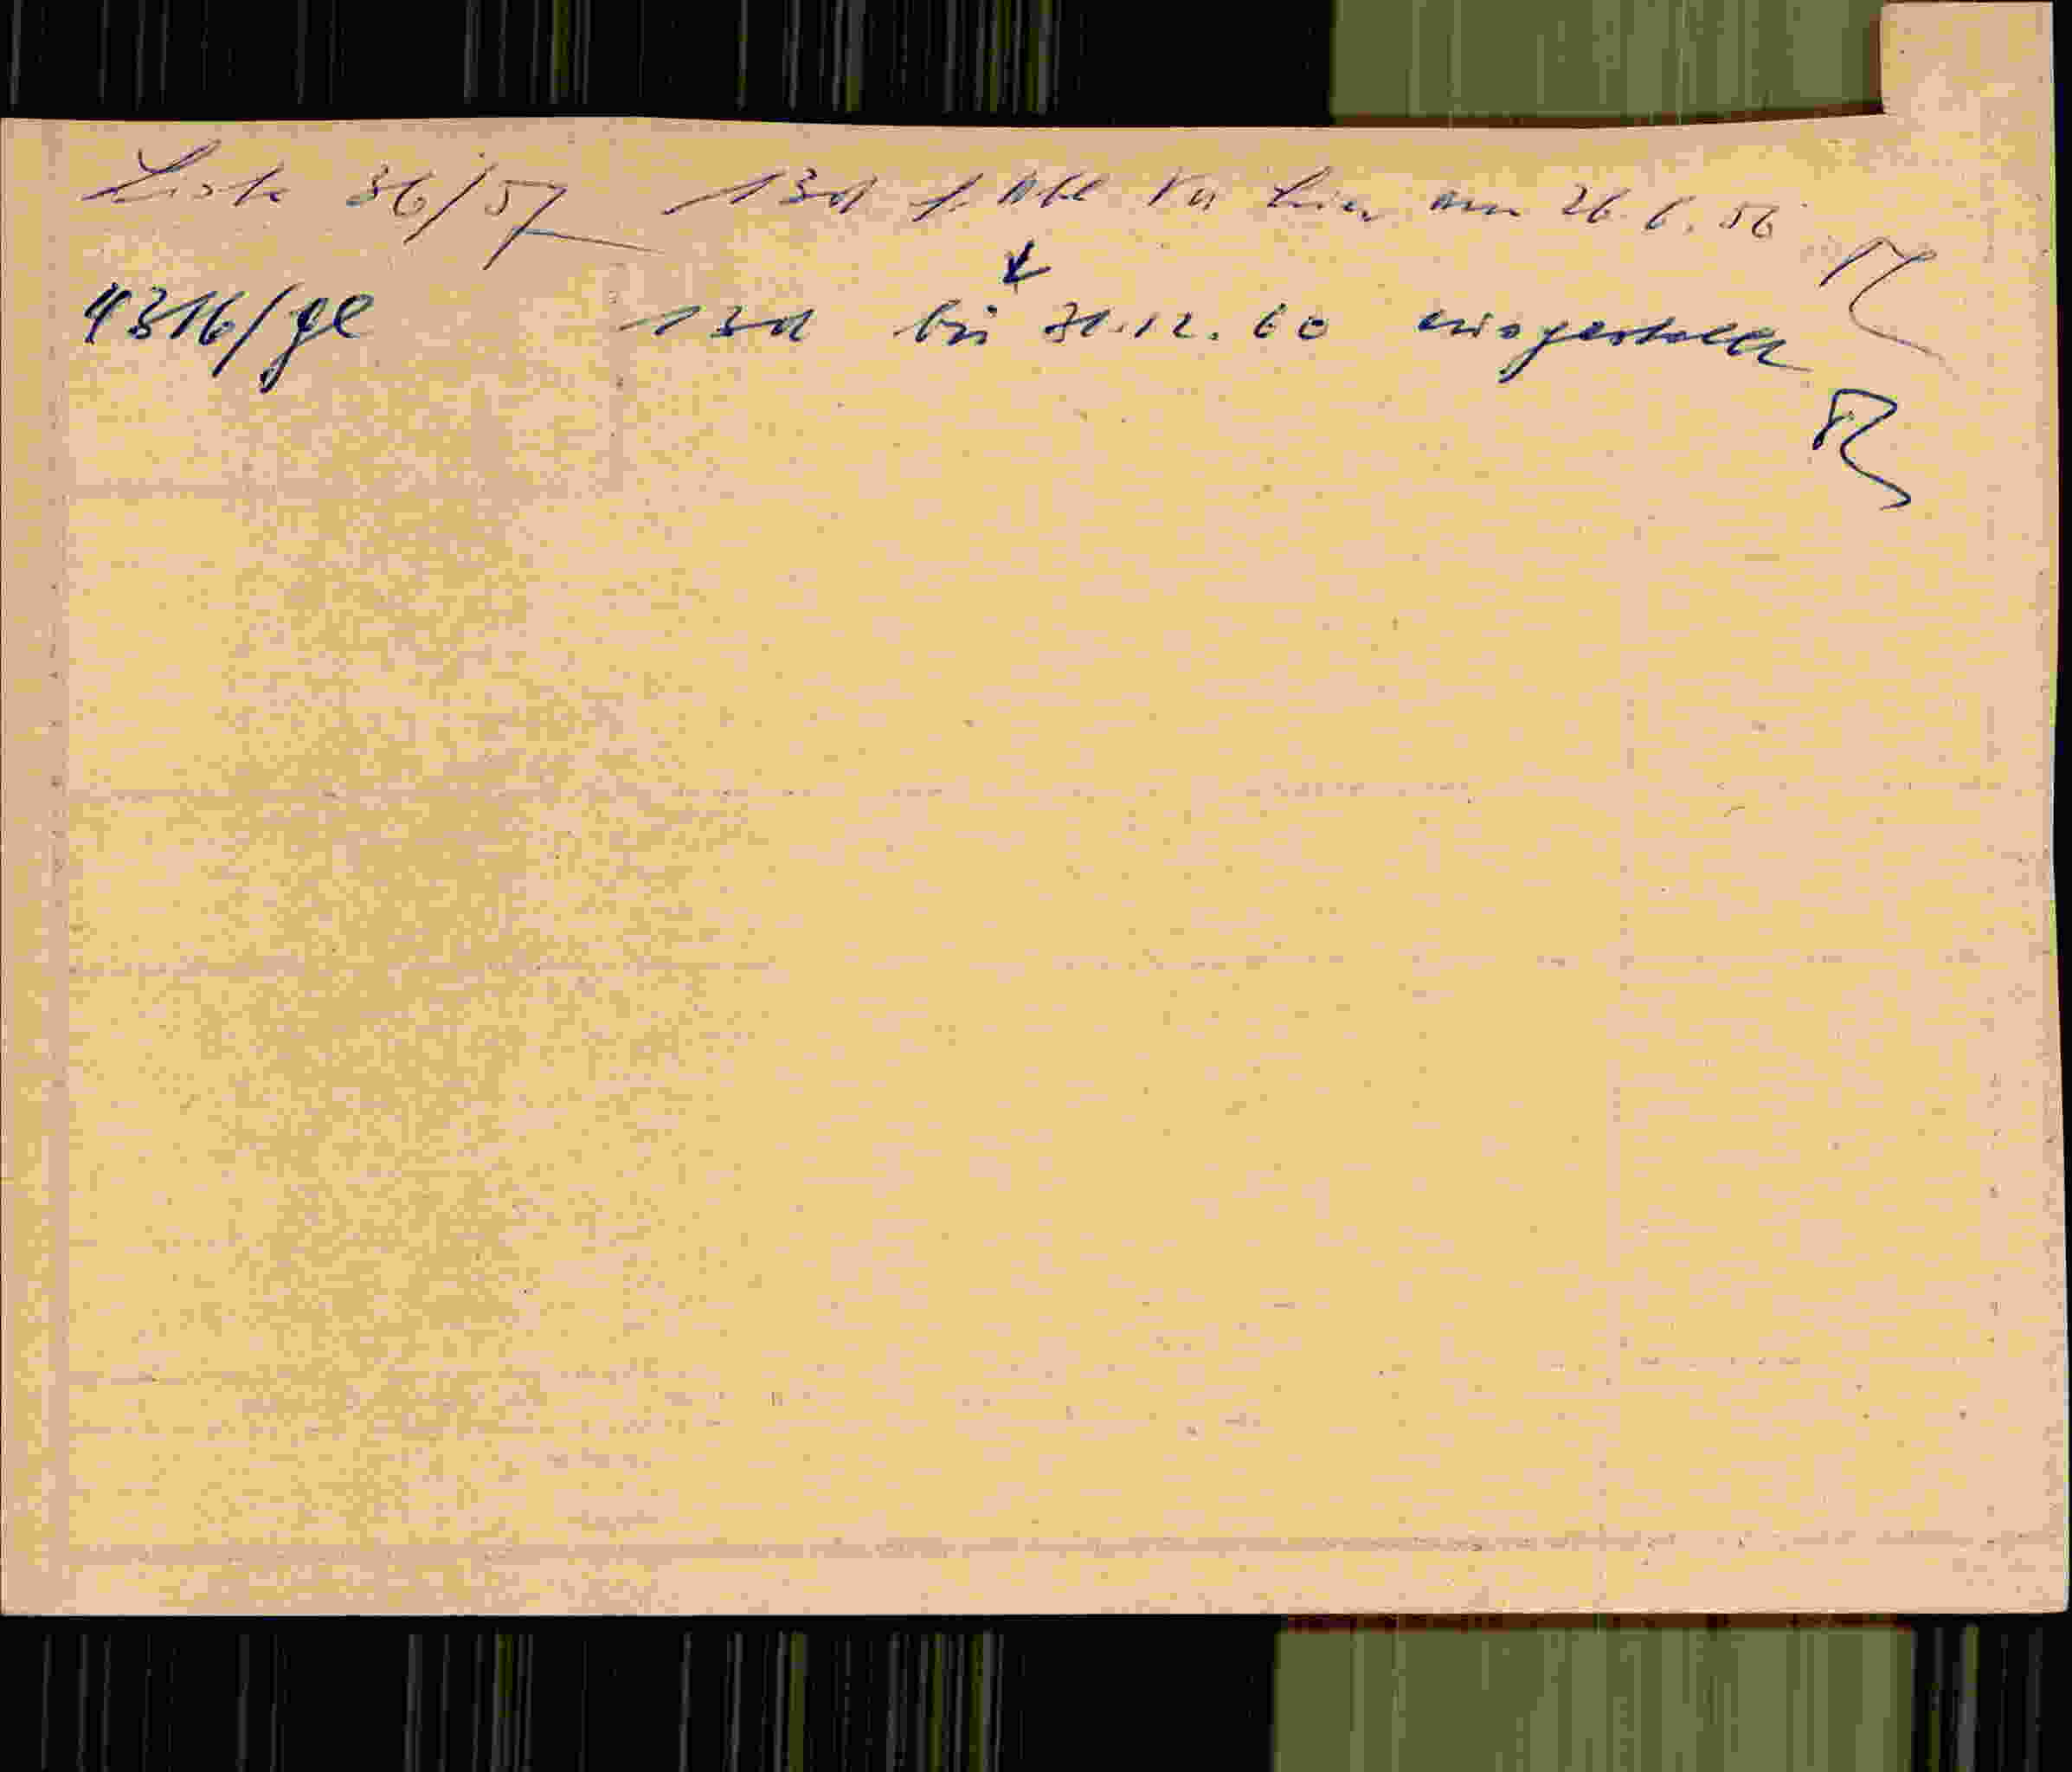 Liste 36/57 13d f. Abt am 26.6.56
4316/ge 13d bis 31.12.60 ausgestellt